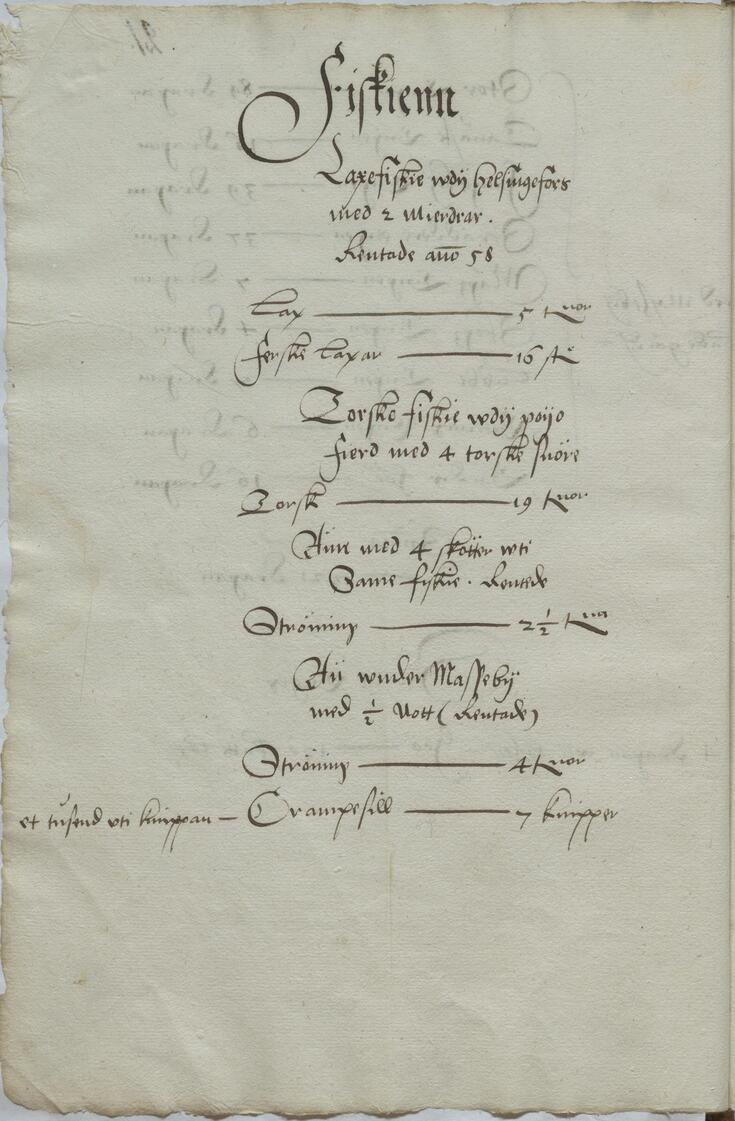 Fiskienn
Laxefiskie wdij helsingefors
med 2 Mierdrar.
Rentade anno 58
Lax — 5 tnor
ferske laxar — 16 st
Torske fiskie wdij poijo
fierd med 4 torske snöre
Torsk — 19 tnor
Än med 4 skötter wti
Same fiskie. Rentede
Ströming — 2 1/2 tnor
Än wnder Masseby
med 1/2 Nott (Rentade)
Ströming — 4 tnor
et tusend vti knippan — Crampesill — 7 knipper